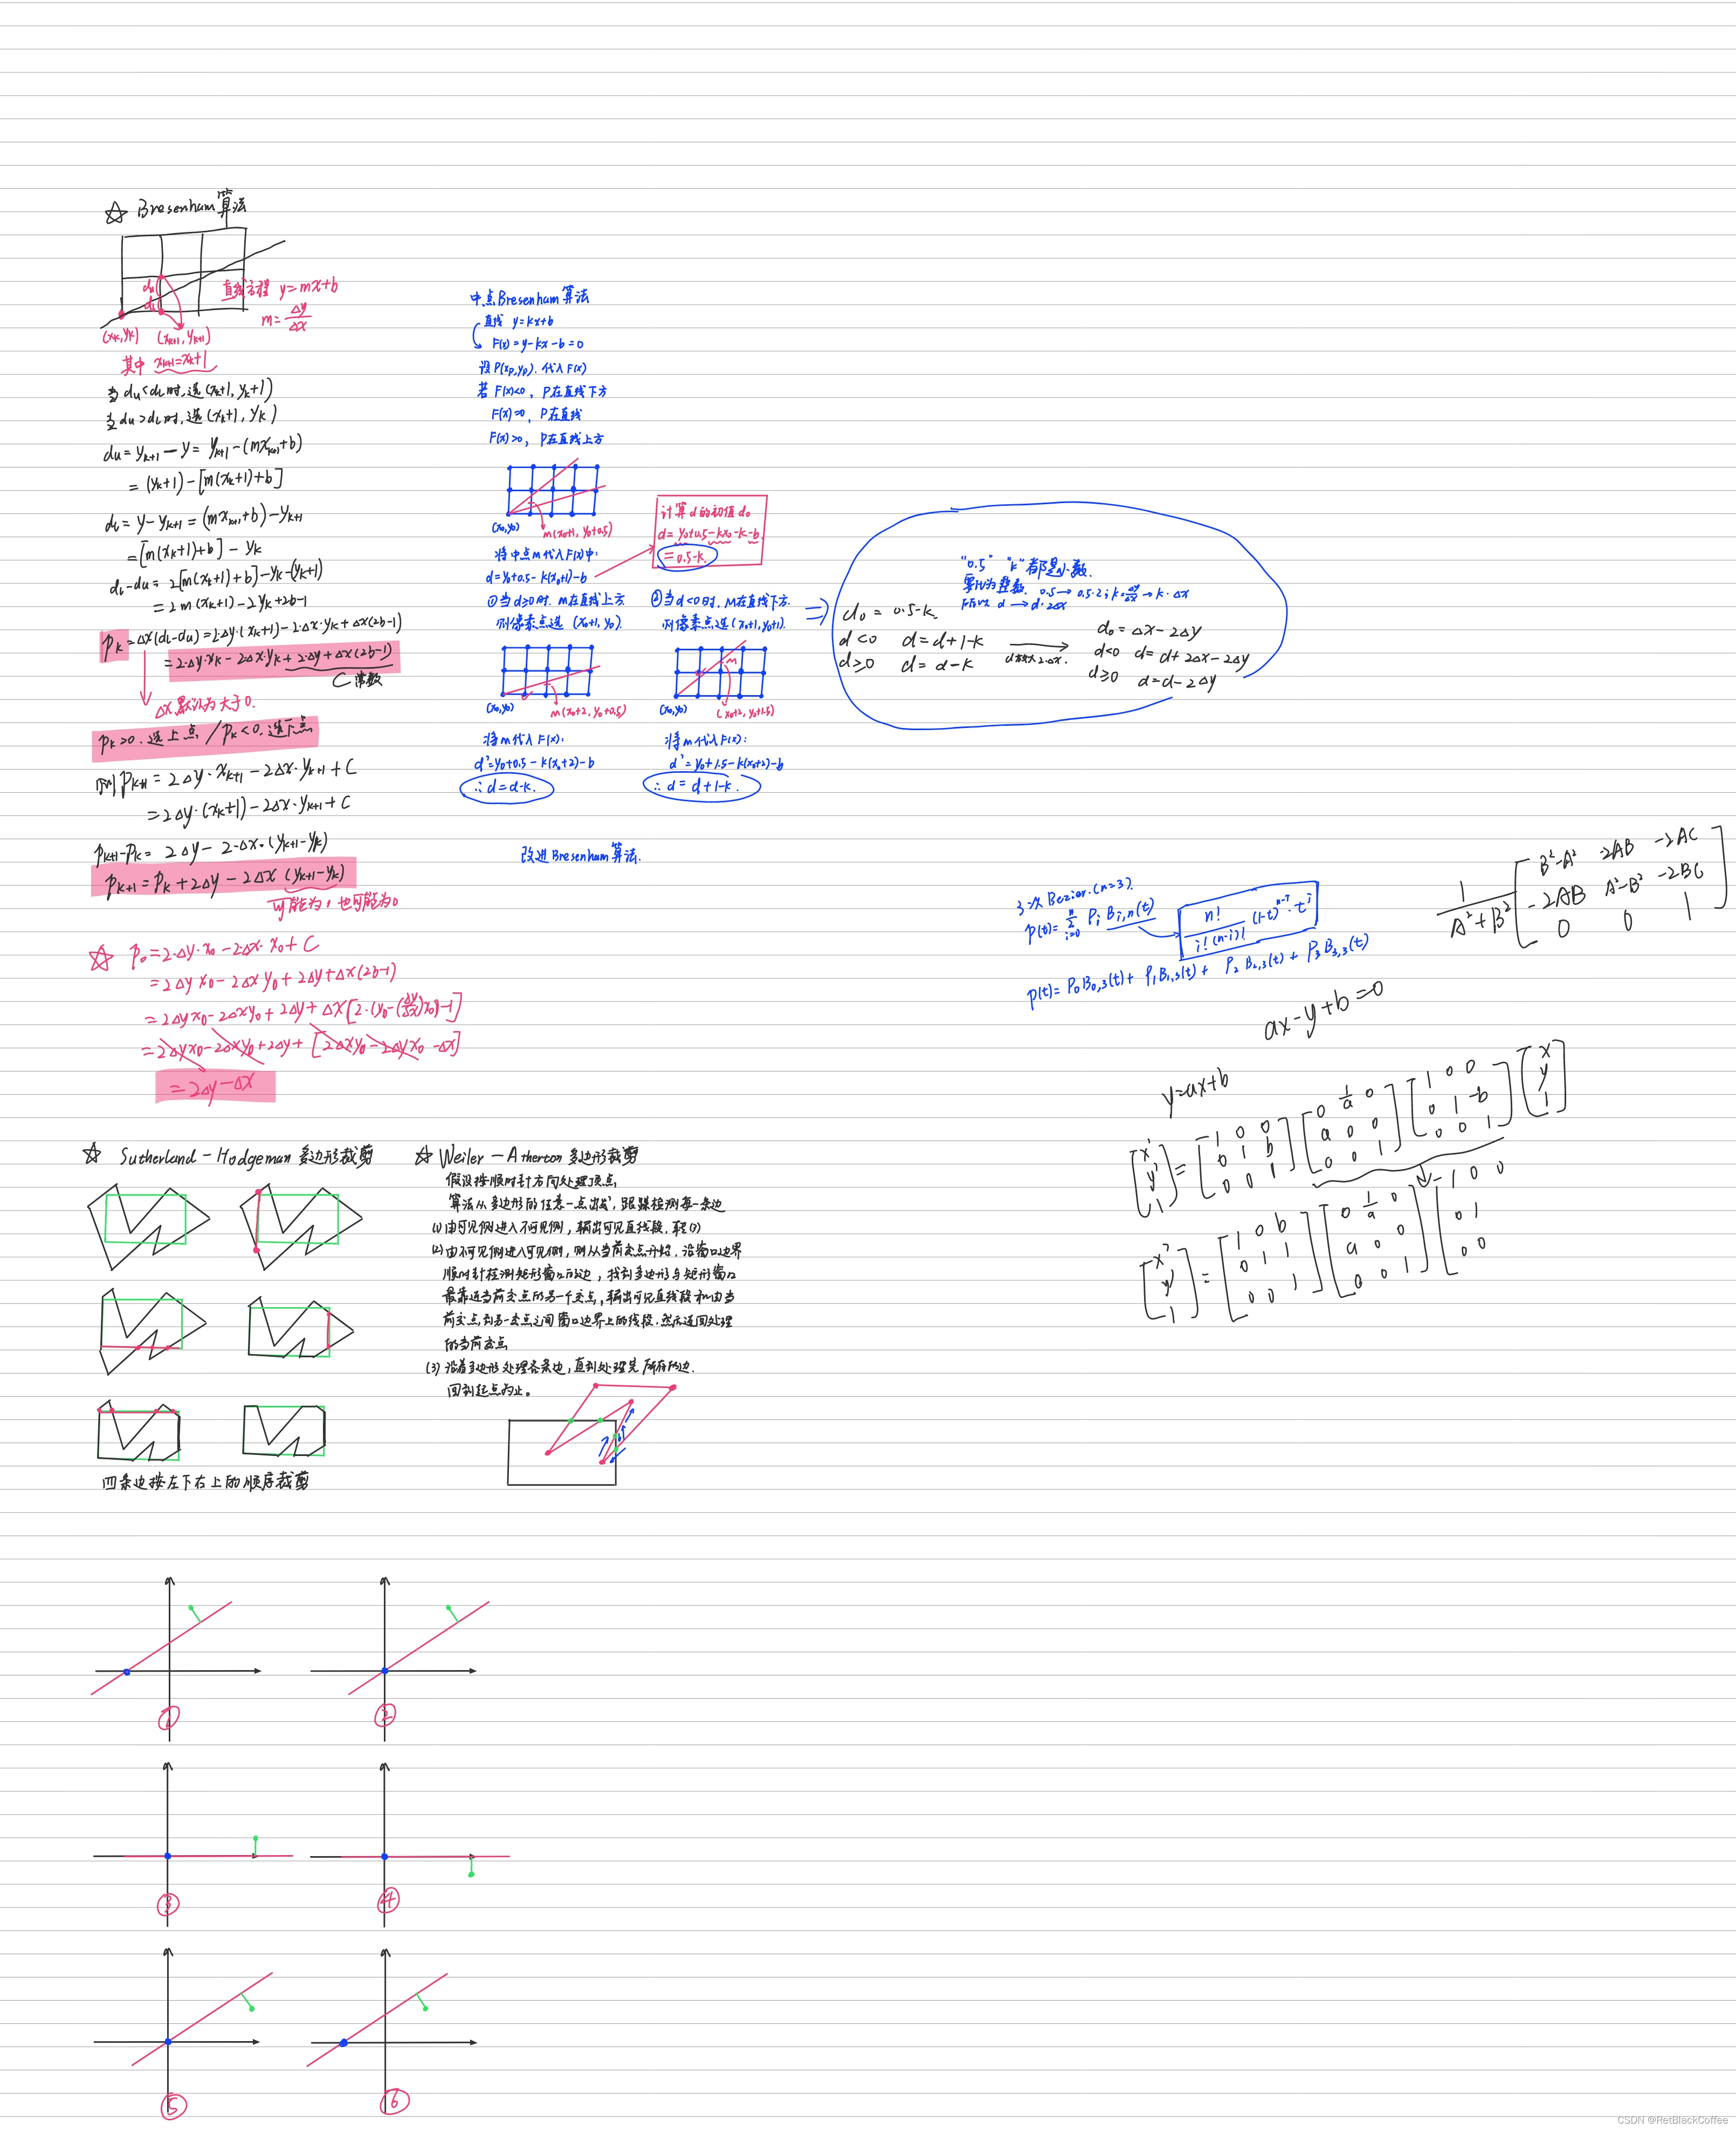 ☆ Bresenham算法
du
dl
直线方程 y=mx+b
m=Δy/Δx
(xk,yk) (xk+1,yk+1)
其中 xk+1=xk+1
当du<dl时,选(xk+1, yk+1)
当du>dl时,选(xk+1, yk)
du=yk+1-y=yk+1-(mxk+1+b)
=(yk+1)-[m(xk+1)+b]
dl=y-yk+1=(mxk+1+b)-yk+1
=[m(xk+1)+b]-yk
dl-du=2[m(xk+1)+b]-yk-(yk+1)
=2m(xk+1)-2yk+2b-1
pk=Δx(dl-du)=2·Δy·(xk+1)-2·Δx·yk+Δx(2b-1)
=2·Δy·xk-2Δx·yk+2·Δy+Δx(2b-1)
C 常数
Δx默认为大于0.
pk>0.选上点/pk<0.选下点
则pk+1=2Δy·xk+1-2Δx·yk+1+C
=2Δy·(xk+1)-2Δx·yk+1+C
pk+1-pk=2Δy-2·Δx·(yk+1-yk)
pk+1=pk+2Δy-2Δx(yk+1-yk)
可能为1也可能为0
☆ p0=2·Δy·x0-2·Δx·x0+C
=2Δyx0-2Δxy0+2Δy+Δx(2b-1)
=2Δyx0-2Δxy0+2Δy+Δx[2·(y0-(Δy/Δx)x0)-1]
=2Δyx0-2Δxy0+2Δy+[2Δxy0-2Δyx0-Δx]
=2Δy-Δx
中点Bresenham算法
直线 y=kx+b
F(x)=y-kx-b=0
设P(xp,yp).代入F(x)
若 F(x)<0, P在直线下方
F(x)=0, P在直线
F(x)>0, P在直线上方
(x0,y0)
m(x0+1,y0+0.5)
将中点m代入F(x)中:
d=y0+0.5-k(x0+1)-b
计算d的初值d0
d=y0+0.5-kx0-k-b
=0.5-k.
①当d≥0时.m在直线上方.
则像素点选(x0+1,y0).
(x0,y0)
m(x0+2,y0+0.5)
将m代入F(x):
d'=y0+0.5-k(x0+2)-b
∴d=d-k.
②当d<0时,M在直线下方.
则像素点选(x0+1,y0+1).
m
(x0,y0)
(x0+2,y0+1.5)
将m代入F(x):
d'=y0+1.5-k(x0+2)-b
∴d=d+1-k.
改进Bresenham算法.
⇒
"0.5" "k"都是小数.
要化为整数. 0.5→0.5·2; k=Δy/Δx→k·Δx
所以 d→d·2Δx
d0=0.5-k.
d<0 d=d+1-k
d≥0 d=d-k
d放大2·Δx.
d0=Δx-2Δy
d<0 d=d+2Δx-2Δy
d≥0 d=d-2Δy
3次Bezier.(n=3)
p(t)=Σ(i=0,n) Pi Bi,n(t)
n!/(i!(n-i)!) (1-t)^(n-i)·t^i
p(t)=P0B0,3(t)+P1B1,3(t)+P2B2,3(t)+P3B3,3(t)
1/(A²+B²)
B²-A² -2AB -2AC
-2AB A²-B² -2BC
0 0 1
ax-y+b=0
y=ax+b
[x' y' 1] = [1 0 0; 0 1 b; 0 0 1] [0 1/a 0; a 0 0; 0 0 1] [1 0 0; 0 1 -b; 0 0 1] [x y 1]
[x' y' 1] = [1 0 b; 0 1 1; 0 0 1] [0 1/a 0; a 0 0; 0 0 1] [1 0 0; 0 1; 0 0
☆ Sutherland-Hodgeman多边形裁剪
四条边按左下右上的顺序裁剪
☆ Weiler-Atherton多边形裁剪
假设按顺时针方向处理顶点
算法从多边形的任意一点出发,跟踪检测每一条边
(1)由可见侧进入不可见侧,输出可见直线段.转(3)
(2)由不可见侧进入可见侧,则从当前交点开始.沿窗口边界
顺时针检测矩形窗口的边,找到多边形与矩形窗口
最靠近当前交点的另一个交点,输出可见直线段和由当
前交点到另一交点之间窗口边界上的线段.然后返回处理
的当前交点
(3)沿着多边形处理各条边,直到处理完所有的边.
回到起点为止。
①
②
③
④
⑤
⑥
CSDN @RetBlackCoffee